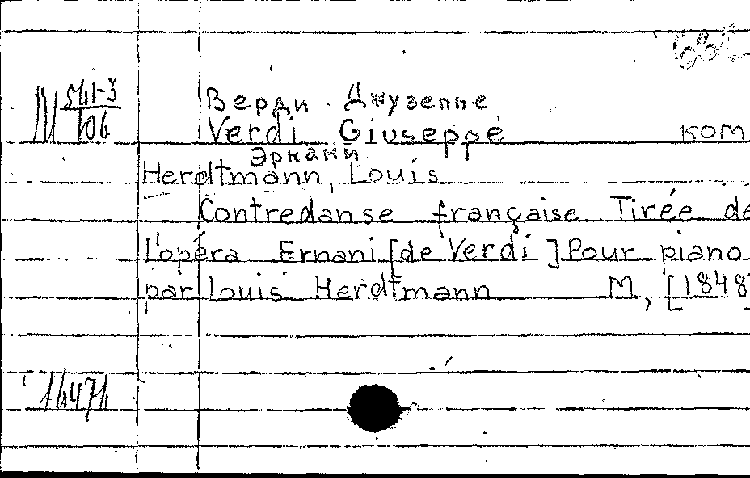 М 541-3
106
Верди Джузеппе
Verdi Giuseppe ком
Эрнани
Herdtmann, Louis
Contredanse française Tirée de
l'opéra Ernani [de Verdi] Pour piano
par Louis Herdtmann M, [1848]